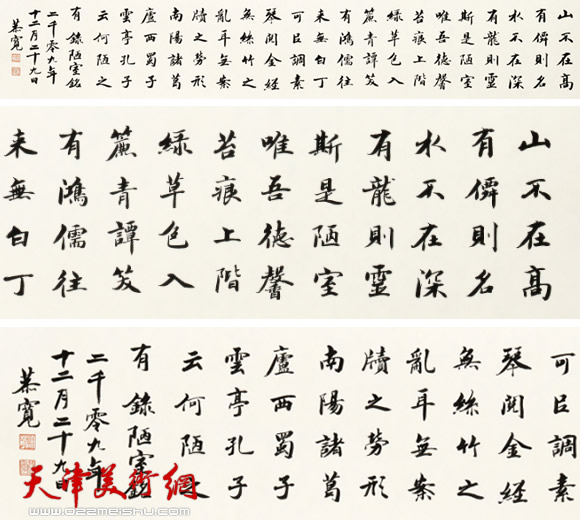 山不在高
有僊則名
水不在深
有龍則靈
斯是陋室
唯吾德馨
苔痕上階
綠草色入
簾青譚笑
有鴻儒往
来無白丁
可㠯調素
琴閱金經
無絲竹之
亂耳無案
牘之勞形
南陽諸葛
廬西蜀子
雲亭孔子
云何陋之
有錄陋室銘
二千零九年
十二月二十九日
寬
山不在高
有僊則名
水不在深
有龍則靈
斯是陋室
唯吾德馨
苔痕上階
綠草色入
簾青譚笑
有鴻儒往
来無白丁
可㠯調素
琴閱金經
無絲竹之
亂耳無案
牘之勞形
南陽諸葛
廬西蜀子
雲亭孔子
云何陋之
有錄陋室銘
二千零九年
十二月二十九日
寬
天津美術網
www.022meishu.com